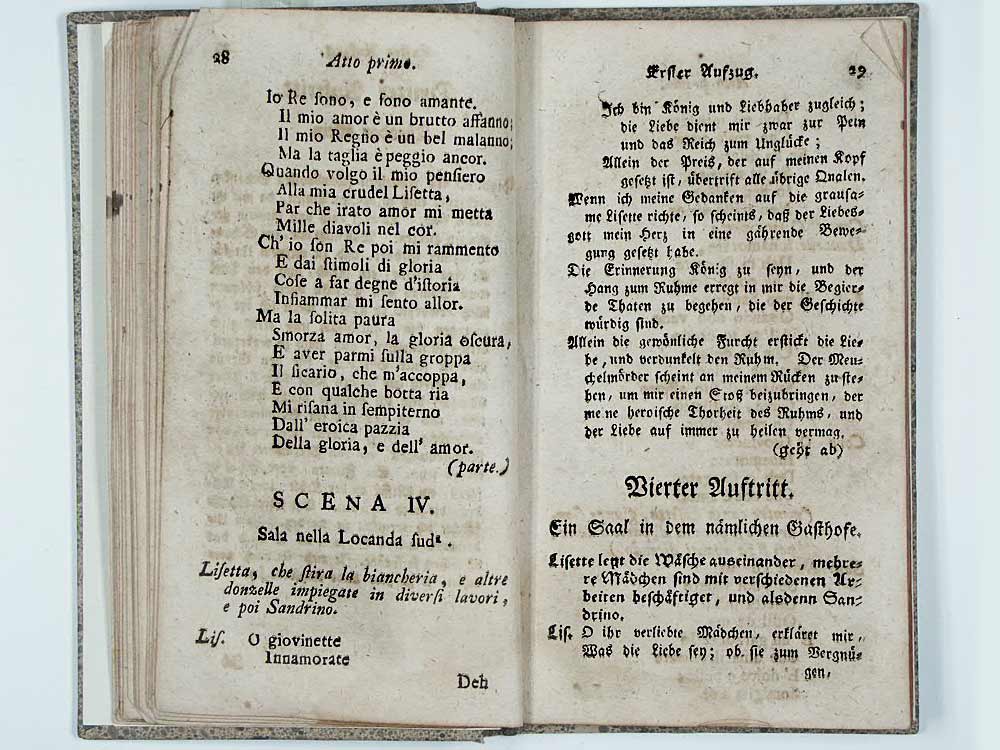 28
Atto primo.
Io Re ſono, e ſono amante.
Il mio amor è un brutto affanno;
Il mio Regno è un bel malanno;
Ma la taglia è peggio ancor.
Quando volgo il mio penſiero
Alla mia crudel Liſetta,
Par che irato amor mi metta
Mille diavoli nel cor.
Ch' io ſon Re poi mi rammento
E dai ſtimoli di gloria
Coſe a far degne d'iſtoria
Infiammar mi ſento allor.
Ma la ſolita paura
Smorza amor, la gloria oſcura,
E aver parmi ſulla groppa
Il ſicario, che m'accoppa,
E con qualche botta ria
Mi riſana in ſempiterno
Dall' eroica pazzia
Della gloria, e dell' amor.
(parte.)
SCENA IV.
Sala nella Locanda ſud.
Liſetta, che ſtira la biancheria, e altre
donzelle impiegate in diverſi lavori,
e poi Sandrino.
Liſ. O giovinette
Innamorate
Deh
Erſter Aufzug.
29
Ich bin König und Liebhaber zugleich;
die Liebe dient mir zwar zur Pein
und das Reich zum Unglücke;
Allein der Preis, der auf meinen Kopf
geſetzt iſt, übertrift alle übrige Qualen.
Wenn ich meine Gedanken auf die grauſa-
me Liſette richte, ſo ſcheints, daß der Liebes-
gott mein Herz in eine gährende Bewe-
gung geſetzt habe.
Die Erinnerung König zu ſeyn, und der
Hang zum Ruhme erregt in mir die Begier-
de Thaten zu begehen, die der Geſchichte
würdig ſind.
Allein die gewönliche Furcht erſtickt die Lie-
be, und verdunkelt den Ruhm. Der Meu-
chelmörder ſcheint an meinem Rücken zu ſte-
hen, um mir einen Stoß beizubringen, der
meine heroiſche Thorheit des Ruhms, und
der Liebe auf immer zu heilen vermag.
(geht ab)
Vierter Auftritt.
Ein Saal in dem nämlichen Gaſthofe.
Liſette legt die Wäſche auseinander, mehre-
re Mädchen ſind mit verſchiedenen Ar-
beiten beſchäftiget, und alsdenn San-
drino.
Liſ. O ihr verliebte Mädchen, erkläret mir,
Was die Liebe ſey; ob ſie zum Vergnü-
gen,